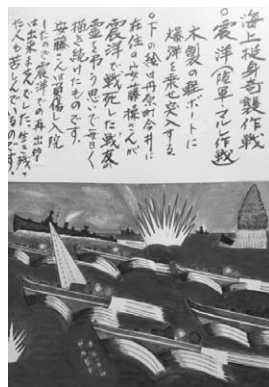 海上挺身奇襲作戦
○震洋(陸軍マルレ作戦)
木製の軽ボートに
爆弾を乗せ突入する
○下の絵は丹原町今井に
在住の安藤様さんが
震洋で戦死した戦友の
霊を弔う思いで毎日く
描き続けたものです。
安藤さんは負傷し入院
したので震洋での再出撃
は出来ませんでした。生き残っ
た人も苦しんでいるのです。